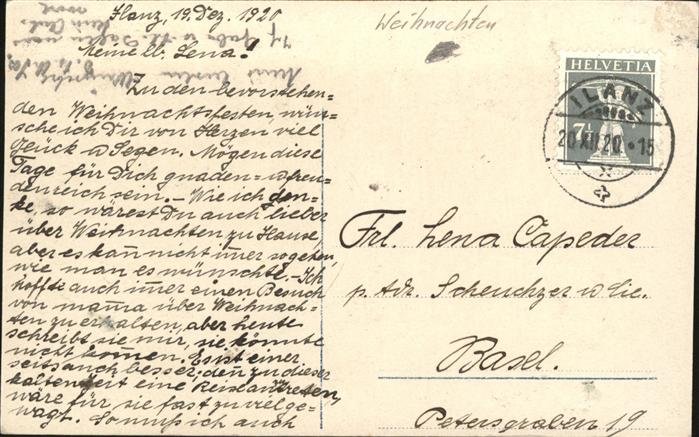 Ilanz, 19. Dez. 1920
Meine lb. Lena!
Zu den bevorstehen=
den Weihnachtsfesten, wün=
sche ich Dir von Herzen, viel
Glück u Segen. Mögen diese
Tage für Dich gnaden= u freu=
denreich sein. – Wie ich den=
ke, so wärest Du auch lieber
über Weihnachten zu Hause,
aber es kañ nicht im̄er so gehen
wie man es wünschte. – Ich
hoffte auch im̄er einen Besuch
von mam̄a über Weihnach=
ten zu erhalten, aber heute
schreibt sie mir, sie könnte
nicht kom̄en. Es ist einer
seits auch besser, den zu dieser
kalten Zeit eine Reise antreten,
wäre für sie fast zu viel ge=
wagt. So muss ich auch
Weihnachten
HELVETIA
7½
ILANZ
20.XII.20.•15
Frl. Lena Capeder
p. Adr. Scheuchzer u Cie.
Basel.
Petersgraben 19